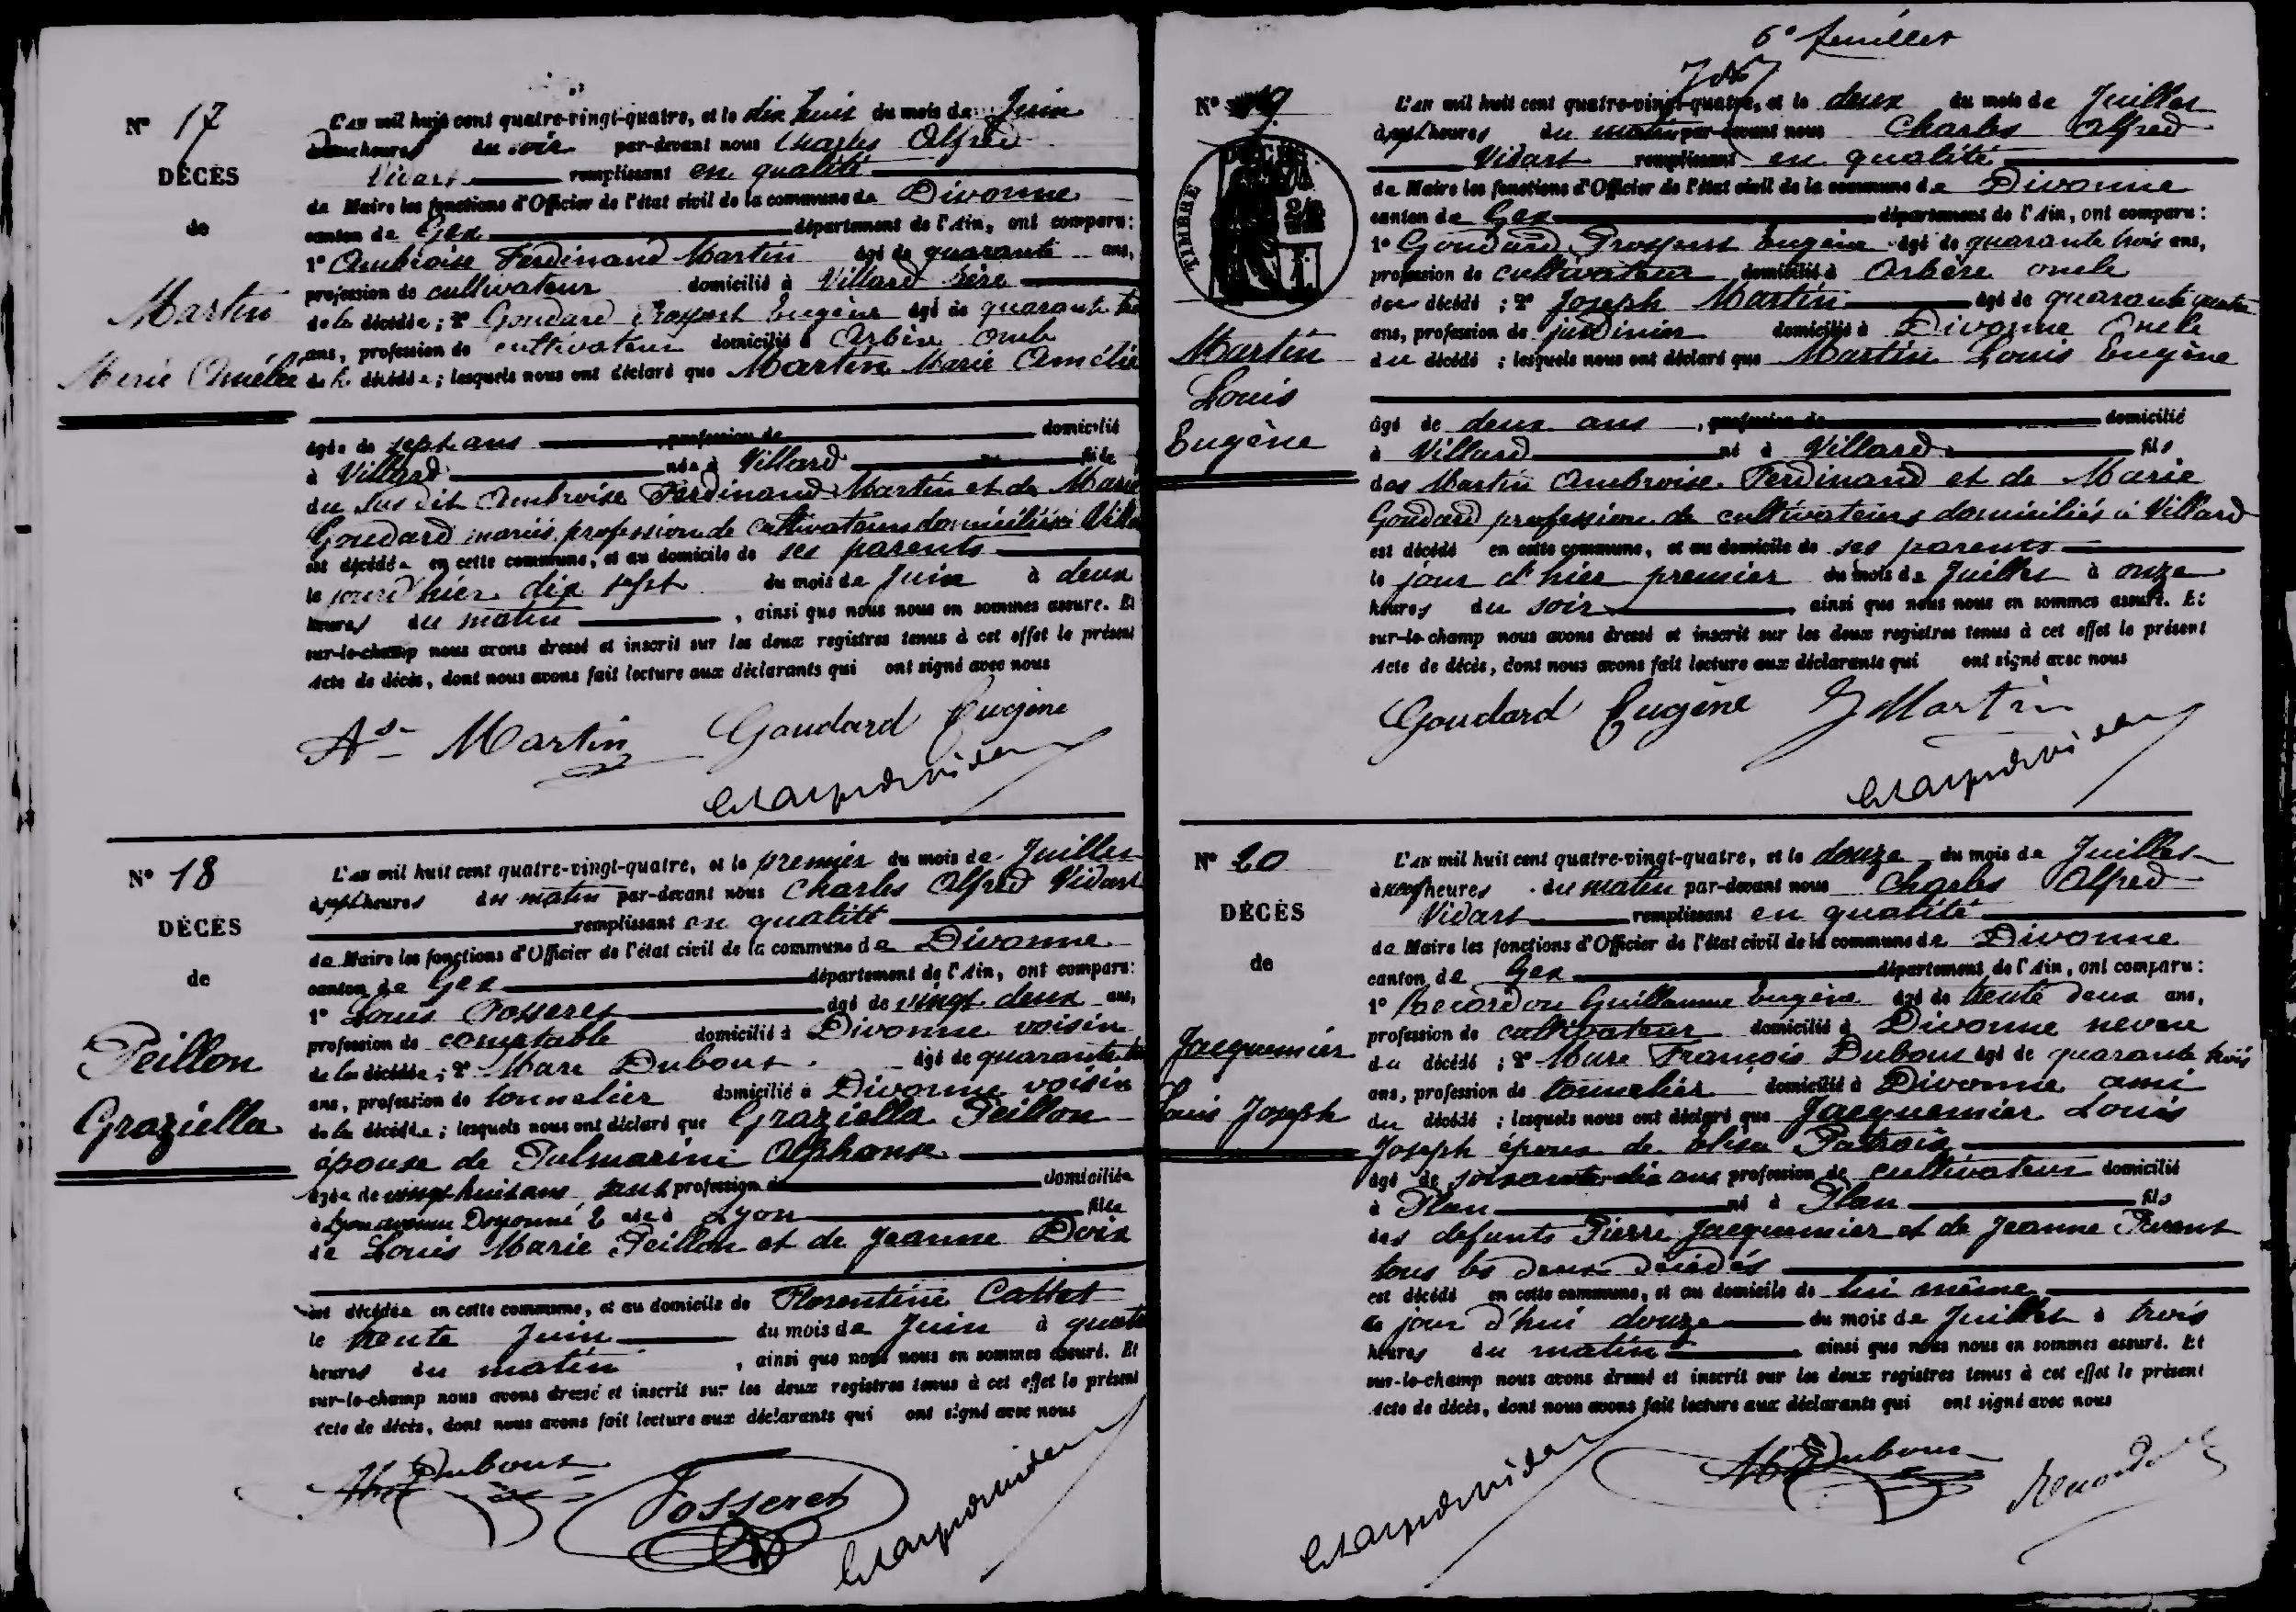 N° 17
DÉCÈS
de
Martin
Marie Amélie
L'an mil huit cent quatre-vingt-quatre, et le dix huit du mois de Juin
heures du soir par-devant nous Charles Alfred
Vidart remplissant en qualité
de Maire les fonctions d'Officier de l'état civil de la commune de Divonne
canton de Gex département de l'Ain, ont comparu:
1° Ambroise Ferdinand Martin âgé de quarante ans,
profession de cultivateur domicilié à Villard père
de la décédée; 2° Goudard Prospert Eugène âgé de quarante
ans, profession de cultivateur domicilié à Arbère oncle
de la décédée; lesquels nous ont déclaré que Martin Marie Amélie
âgée de sept ans, profession de domicilié
à Villard née à Villard fille
du sus dit Ambroise Ferdinand Martin et de Marie
Goudard mariés, profession de cultivateurs domiciliés à
est décédée en cette commune, et au domicile de ses parents
le jour d'hier dix sept du mois de Juin à deux
heures du matin, ainsi que nous nous en sommes assuré. Et
sur-le-champ nous avons dressé et inscrit sur les deux registres tenus à cet effet le présent
Acte de décès, dont nous avons fait lecture aux déclarants qui ont signé avec nous
Martin Goudard Eugène
N° 18
DÉCÈS
de
Peillon
Graziella
L'an mil huit cent quatre-vingt-quatre, et le premier du mois de Juillet
à sept heures du matin par-devant nous Charles Alfred Vidart
remplissant en qualité
de Maire les fonctions d'Officier de l'état civil de la commune de Divonne
canton de Gex département de l'Ain, ont comparu:
1° Louis Fosseret âgé de vingt deux ans,
profession de comptable domicilié à Divonne voisin
de la décédée; 2° Marc Dubout âgé de quarante
ans, profession de tonnelier domicilié à Divonne voisin
de la décédée; lesquels nous ont déclaré que Graziella Peillon
épouse de Palmarini Alphonse
âgée de vingt huit ans sans profession domiciliée
à Lyon avenue 2 née à Lyon fille
de Louis Marie Peillon et de Jeanne Doix
est décédée en cette commune, et au domicile de Florentine Cattet
le trente Juin du mois de Juin à
heures du matin, ainsi que nous nous en sommes assuré. Et
sur-le-champ nous avons dressé et inscrit sur les deux registres tenus à cet effet le présent
Acte de décès, dont nous avons fait lecture aux déclarants qui ont signé avec nous
Dubout
Fosseret
6e feuillet
N° 19
TIMBRE
Martin
Louis
Eugène
L'an mil huit cent quatre-vingt-quatre, et le deux du mois de Juillet
à sept heures du matin par-devant nous Charles Alfred
Vidart remplissant en qualité
de Maire les fonctions d'Officier de l'état civil de la commune de Divonne
canton de Gex département de l'Ain, ont comparu:
1° Goudard Prospert Eugène âgé de quarante trois ans,
profession de cultivateur domicilié à Arbère oncle
du décédé; 2° Joseph Martin âgé de quarante quatre
ans, profession de jardinier domicilié à Divonne Oncle
du décédé; lesquels nous ont déclaré que Martin Louis Eugène
âgé de deux ans, profession de domicilié
à Villard né à Villard fils
des Martin Ambroise Ferdinand et de Marie
Goudard profession de cultivateurs domiciliés à Villard
est décédé en cette commune, et au domicile de ses parents
le jour d'hier premier du mois de Juillet à onze
heures du soir, ainsi que nous nous en sommes assuré. Et
sur-le-champ nous avons dressé et inscrit sur les deux registres tenus à cet effet le présent
Acte de décès, dont nous avons fait lecture aux déclarants qui ont signé avec nous
Goudard Eugène J Martin
N° 20
DÉCÈS
de
Jacquemier
Louis Joseph
L'an mil huit cent quatre-vingt-quatre, et le douze du mois de Juillet
à neuf heures du matin par-devant nous Charles Alfred
Vidart remplissant en qualité
de Maire les fonctions d'Officier de l'état civil de la commune de Divonne
canton de Gex département de l'Ain, ont comparu:
1° Guillaume Eugène âgé de trente deux ans,
profession de cultivateur domicilié à Divonne neveu
du décédé; 2° Marc François Dubout âgé de quarante trois
ans, profession de tonnelier domicilié à Divonne ami
du décédé; lesquels nous ont déclaré que Jacquemier Louis
Joseph époux de Patrois
âgé de soixante dix ans profession de cultivateur domicilié
à Plan né à Plan fils
des defunts Pierre Jacquemier et de Jeanne
tous les deux décédés
est décédé en cette commune, et au domicile de lui même
ce jour d'hui douze du mois de Juillet à trois
heures du matin, ainsi que nous nous en sommes assuré. Et
sur-le-champ nous avons dressé et inscrit sur les deux registres tenus à cet effet le présent
Acte de décès, dont nous avons fait lecture aux déclarants qui ont signé avec nous
Dubout